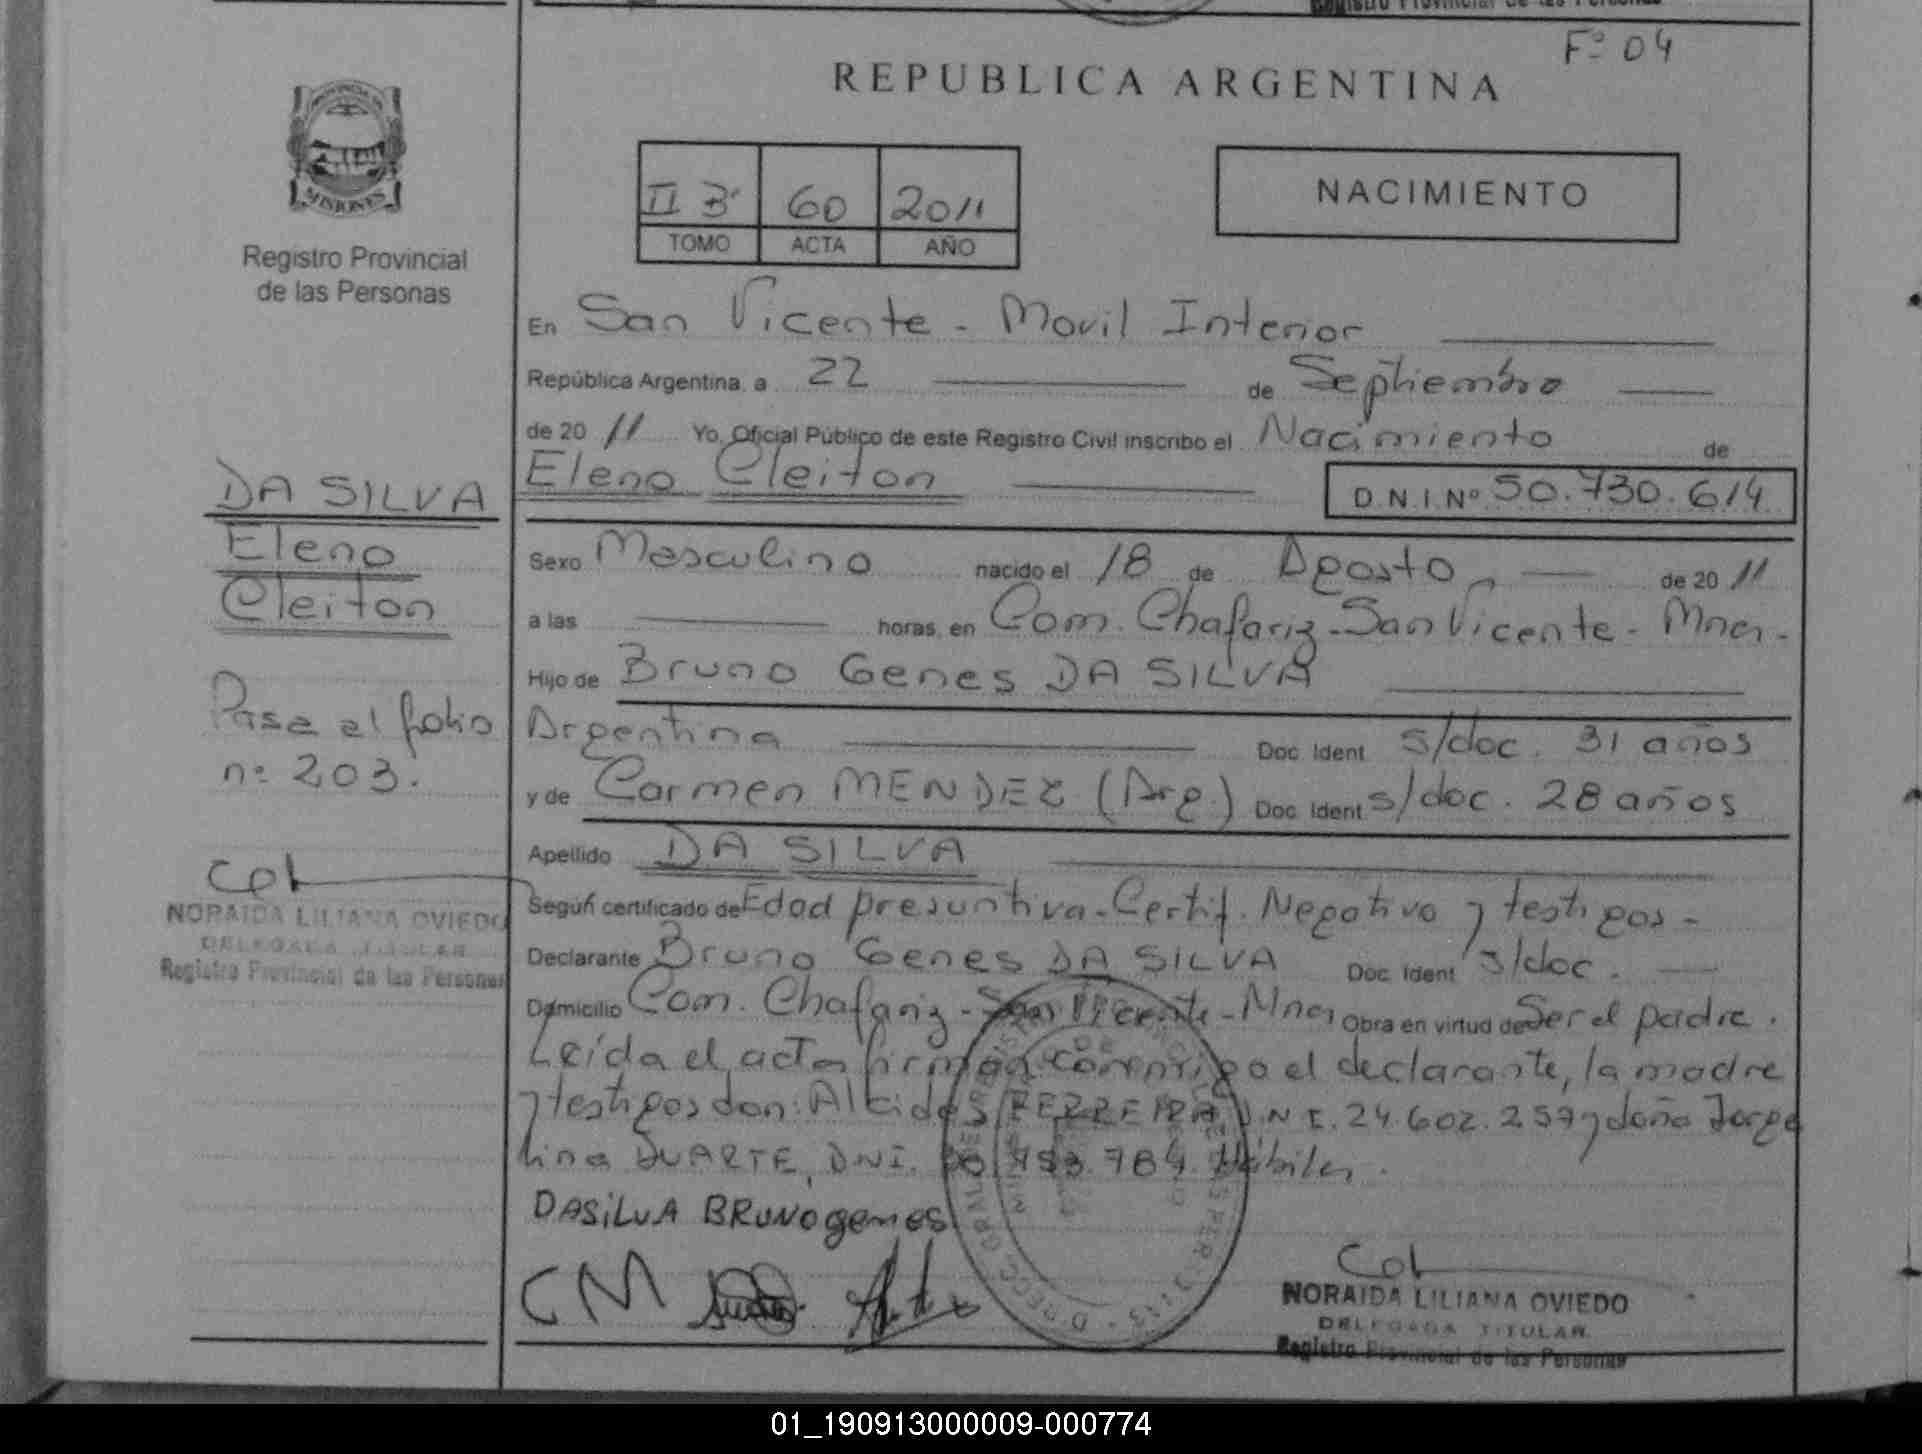 Registro Provincial de las Personas
Fº 04
REPUBLICA ARGENTINA
PROVINCIA DE
MISIONES
Registro Provincial
de las Personas
II 3º 60 2011
TOMO ACTA AÑO
NACIMIENTO
En San Vicente - Movil Interior
República Argentina, a 22 de Septiembre
de 20 11 Yo, Oficial Público de este Registro Civil inscribo el Nacimiento de
Eleno Cleiton D.N.I.Nº 50.730.614
DA SILVA
Eleno
Cleiton
Sexo Masculino nacido el 18 de Agosto de 20 11
a las horas, en Com. Chafariz - San Vicente - Mnes -
Hijo de Bruno Genes DA SILVA
Argentina Doc. Ident. s/doc. 31 años
y de Carmen MENDEZ (Arg.) Doc. Ident. s/doc. 28 años
Apellido DA SILVA
Según certificado de Edad presuntiva - Certif. Negativo y testigos -
Declarante Bruno Genes DA SILVA Doc. Ident. s/doc.
Domicilio Com. Chafariz - San Vicente - Mnes Obra en virtud de Ser el padre.
Leída el acta firman conmigo el declarante, la madre
y testigos don: Alcides FERREIRA D.N.I. 24.602.257 y doña Jorge
lina DUARTE, D.N.I. 784. Hábiles.
DASiLVA BRUNOgenes
CM
Pase al folio
nº 203.
NORAIDA LILIANA OVIEDO
DELEGADA TITULAR
Registro Provincial de las Personas
NORAIDA LILIANA OVIEDO
DELEGADA TITULAR
Registro Provincial de las Personas
01_190913000009-000774